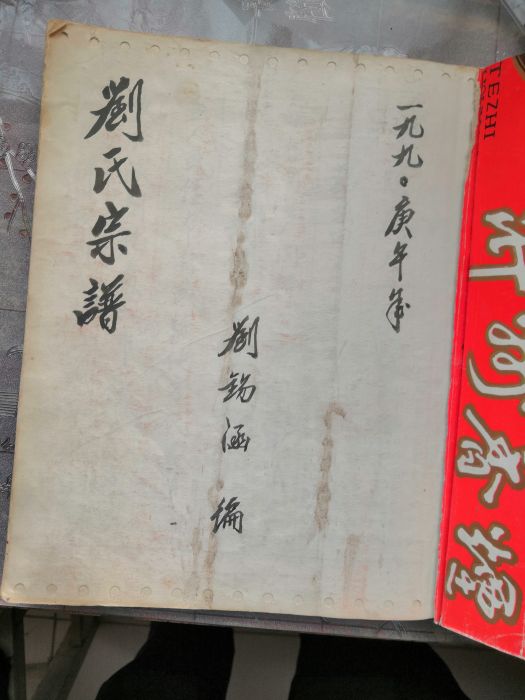 劉氏宗譜
一九九〇庚午年
劉錫涵 編
TEZHI